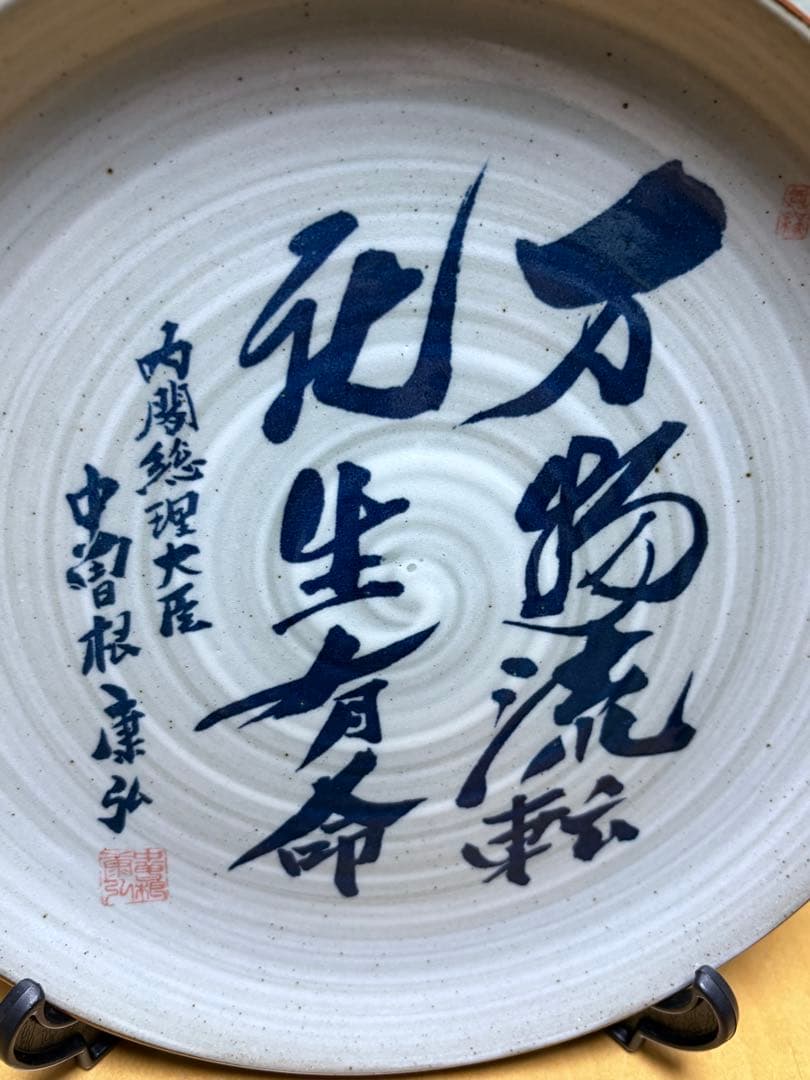 万物流転
化生有命
内閣総理大臣
中曽根康弘